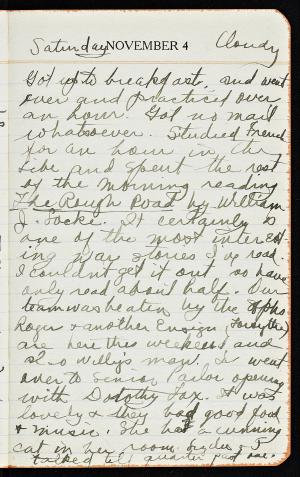 Saturday NOVEMBER 4 Cloudy
Got up to breakfast, and went
over and practiced over
an hour. Got no mail
whatsoever. Studied French
for an hour in the
Libe and spent the rest
of the morning reading
The Rough Road by William
J. Locke. It certainly is
one of the most interest-
ing war stories I've read.
I couldn't get it out so have
only read about half. Our
team was beaten by the Sophs.
Roger & another Ensign
are here this weekend and
so Welly's man. I went
over to Senior Parlor opening
with Dorothy Fox. It was
lovely & they had good food
& music. She has a cunning
cat in her room. & I
talked till quarter past one.